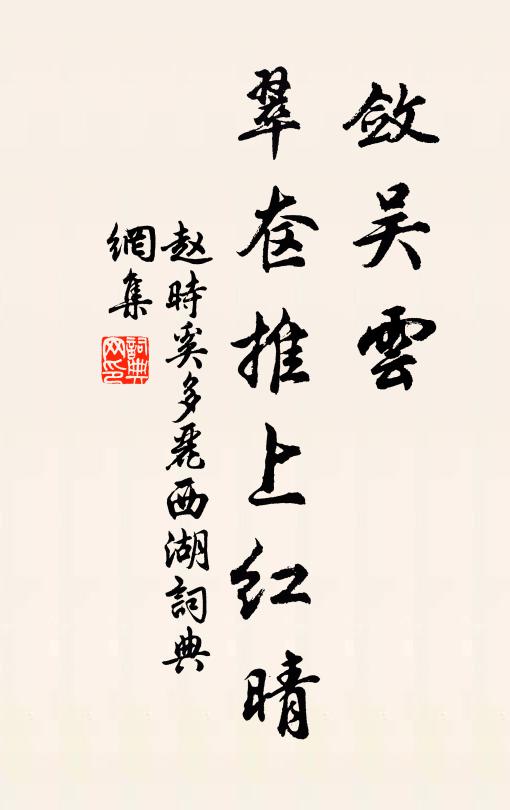 敛吴雲
翠奁推上红晴
赵時奚多麗西湖詞典
網集
詞典
网印